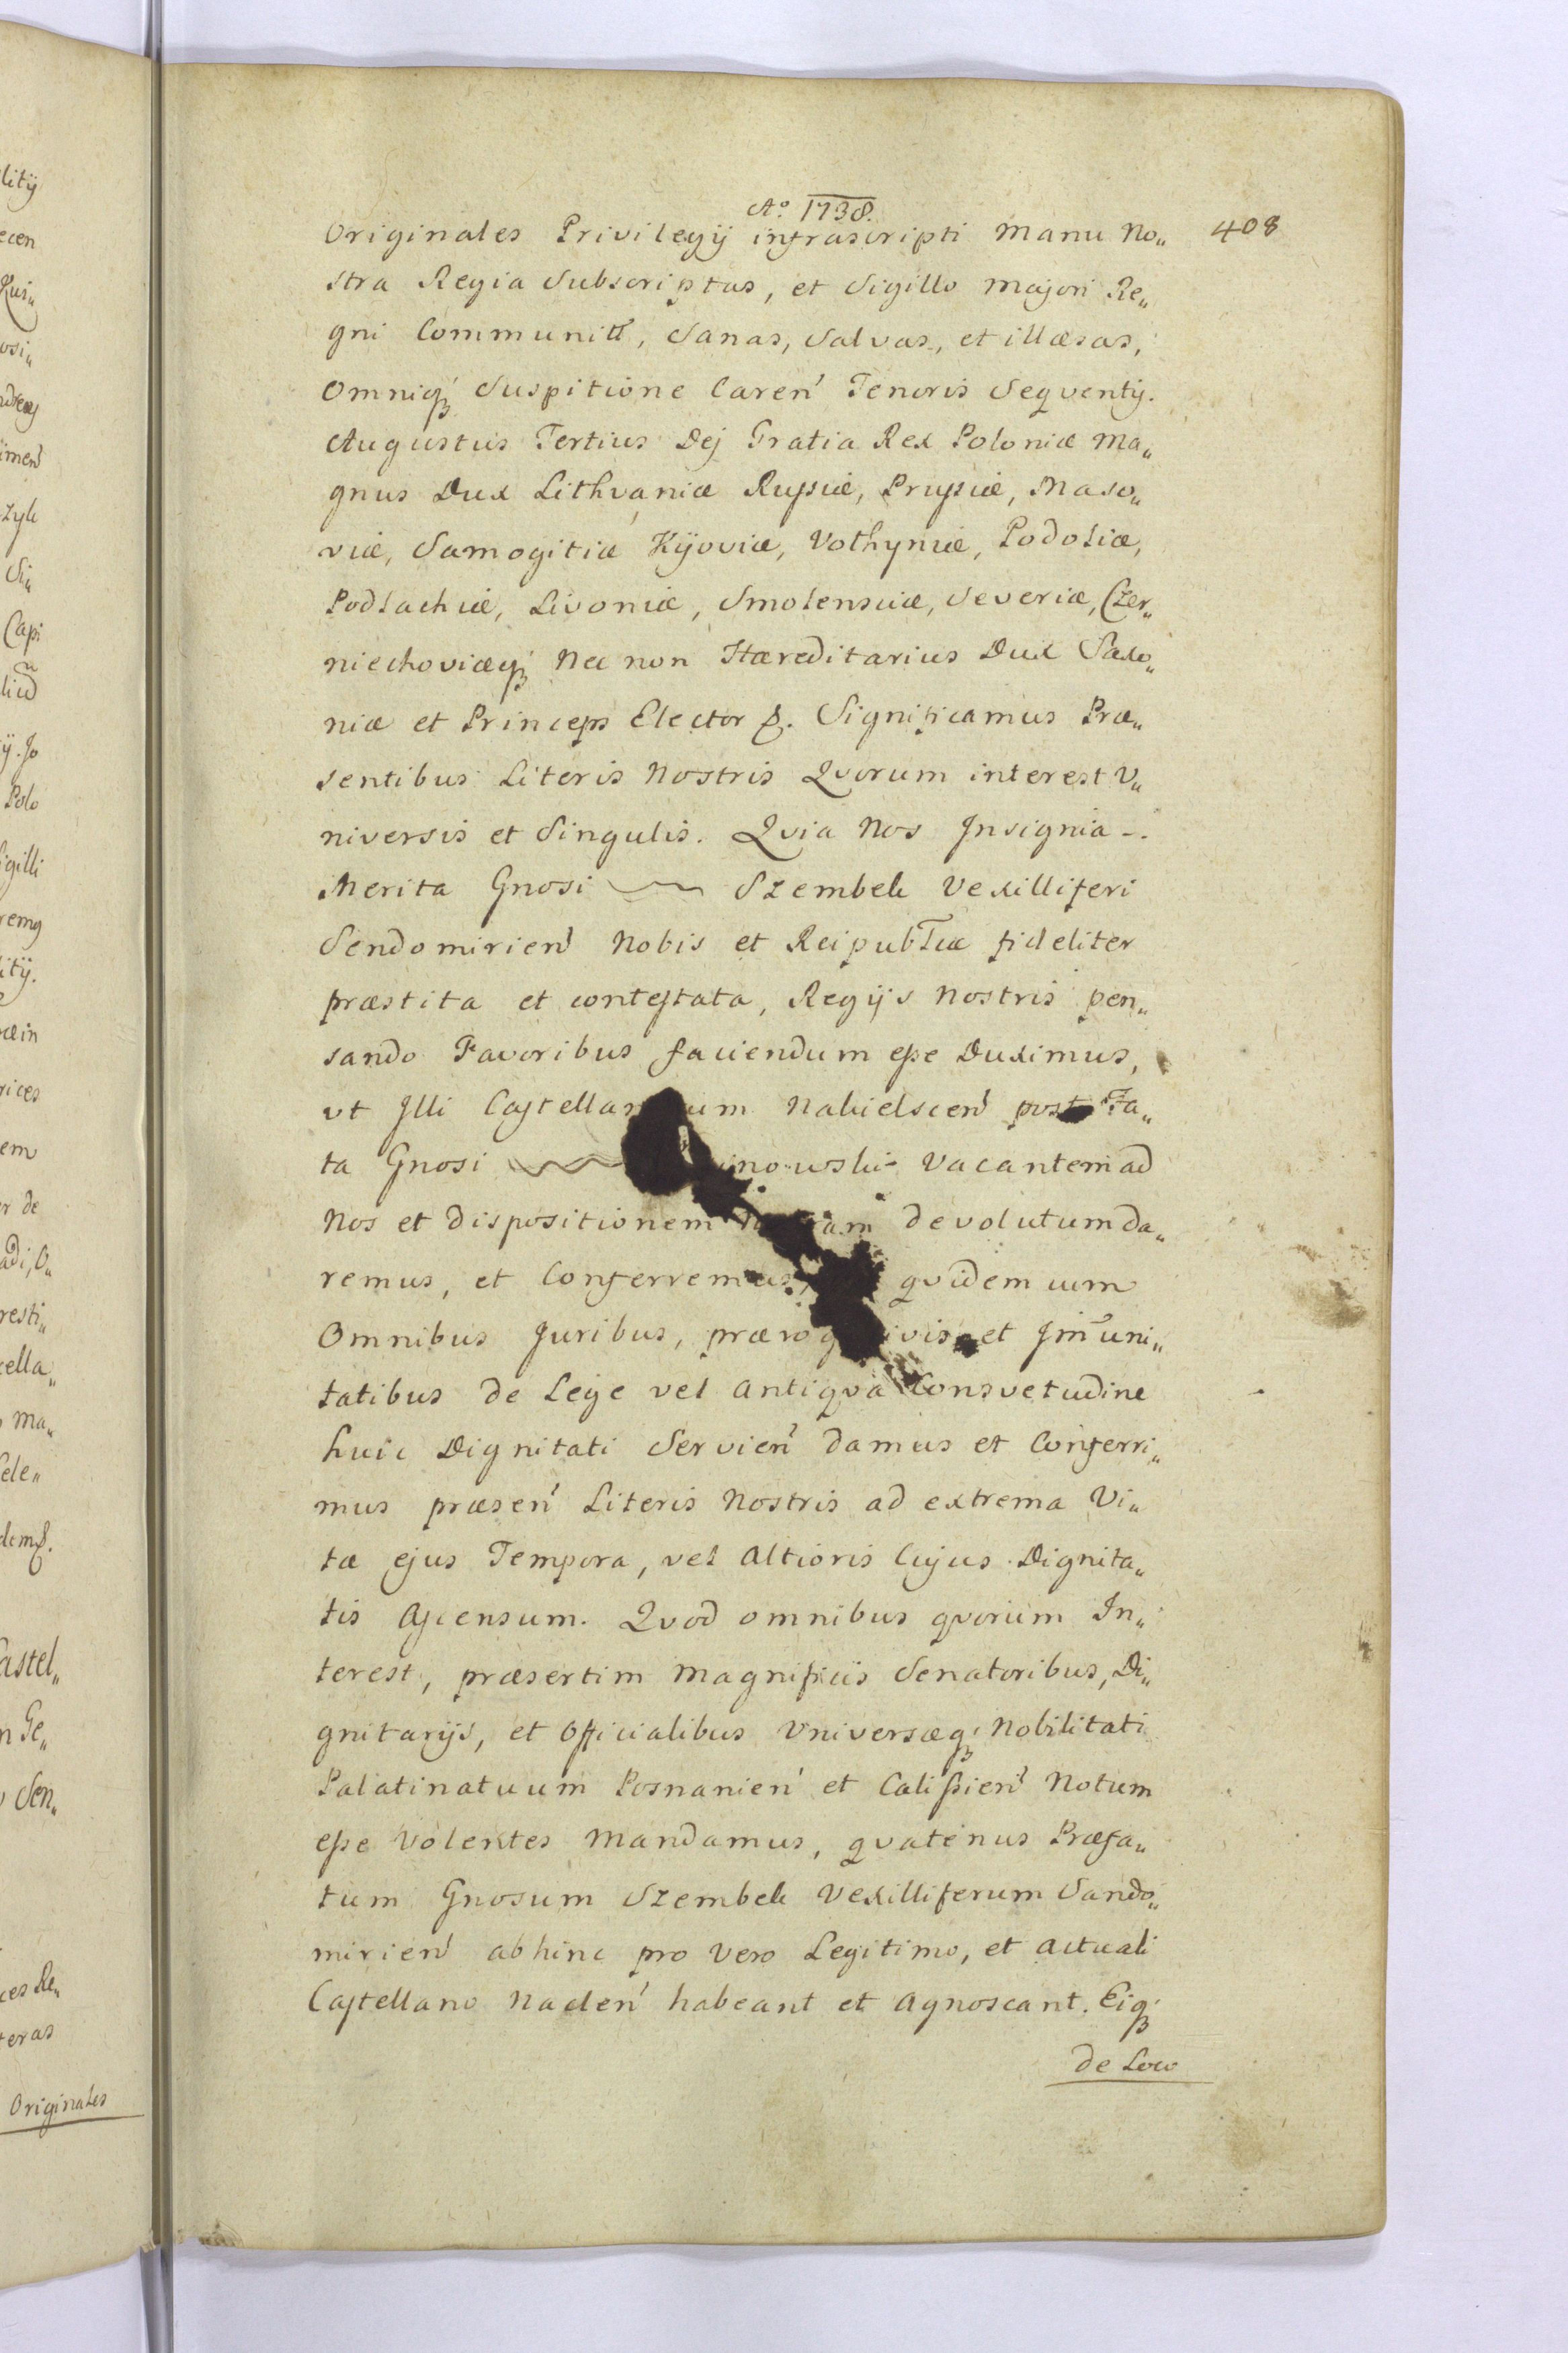 Aº 1738.
Originales Privilegij infrascripti Manu No„ 408
stra Regia Subscriptas, et Sigillo Majori Re„
gni Communitt, Sanas, Salvas, et illæsas,
Omniq; Suspitione Caren' Tenoris Seqventis.
Augustus Tertius Dej Gratia Rex Poloniæ Ma„
gnus Dux Lithvaniæ Russiæ, Prussiæ, Maso„
viæ, Samogitiæ Kijoviæ, Volhyniæ, Podoliæ,
Podlachiæ, Livoniæ, Smolensciæ, Severiæ, Czer„
niechoviæq; Nec non Hæreditarius Dux Saxo„
niæ et Princeps Elector &. Significamus Præ„
sentibus Literis Nostris Qvorum interest V„
niversis et Singulis. Qvia Nos Insignia -.
Merita Gnosi Szembek Vexilliferi
Sendomirien' Nobis et Reipublicæ fideliter
præstita et contestata, Regijs Nostris pen„
sando Favoribus faciendum esse Duximus,
vt Illi Castellan um Nakielscen' post Fa„
ta Gnosi inowski Vacantem ad
Nos et dispositionem am devolutum da„
remus, et Conferremus, qvidem cum
Omnibus Juribus, prærog ivis et Im̃uni„
tatibus de Lege vel Antiqva Consvetudine
huic Dignitati Servien' damus et Conferri„
mus præsen' Literis Nostris ad extrema Vi„
tæ ejus Tempora, vel Altioris Cujus Dignita„
tis Ascensum. Qvod omnibus qvorum In„
terest, præsertim Magnificis Senatoribus, Di„
gnitarijs, et Officialibus Vniversæq; Nobilitati
Palatinatuum Posnanien' et Calissien' Notum
esse Volentes Mandamus, qvatenus Præfa„
tum Gnosum Szembek Vexilliferum Sando„
mirien' abhinc pro Vero Legitimo, et Actuali
Castellano Naclen' habeant et Agnoscant. Eiq;
de Loco
Originales